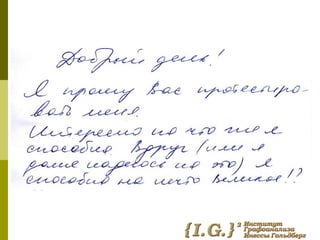 Добрый день!
Я прошу Вас протестиро-
вать меня.
Интересно на что же я
способна Вдруг (или я
даже надеюсь на это) я
способна на нечто Великое!?
{I.G.}² Институт
Графоанализа
Инессы Гольдберг